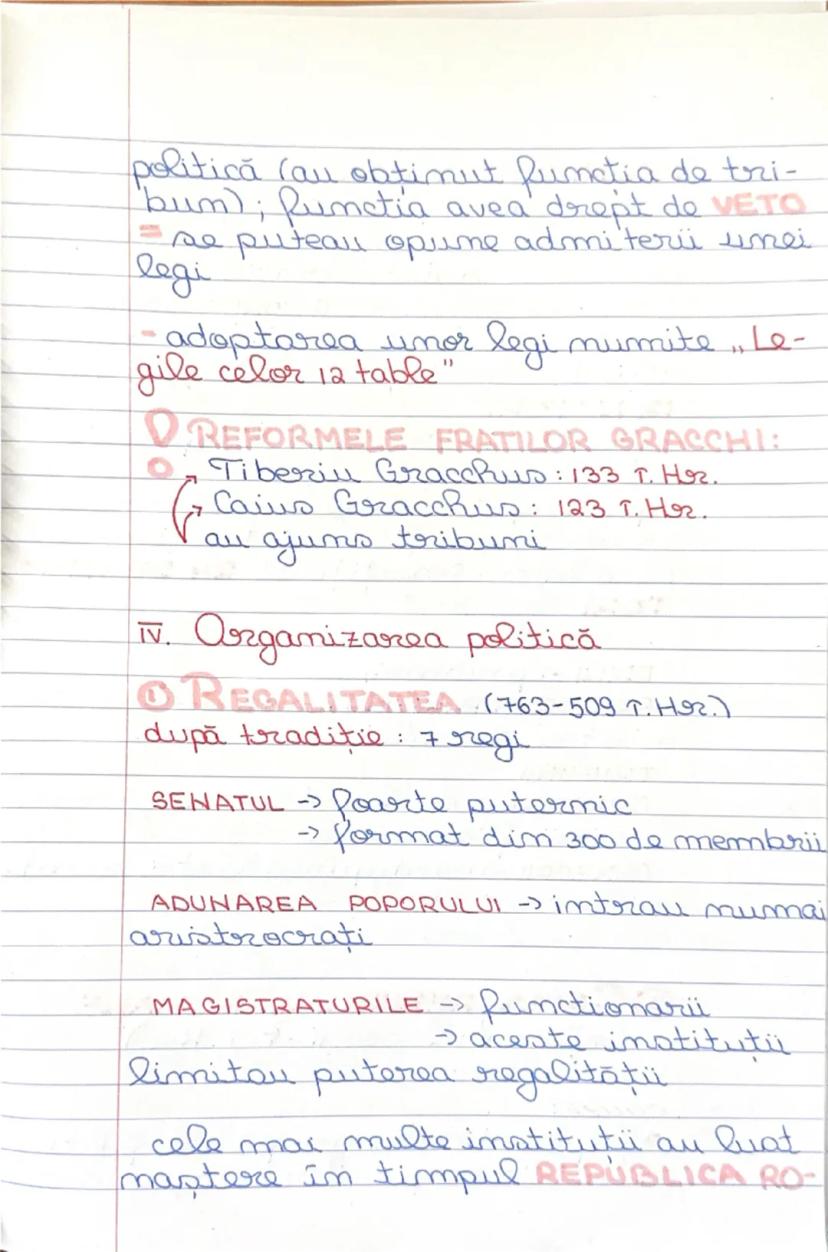 politică (au obținut funcția de tri-
bun); funcția avea drept de VETO
= se puteau opune admiterii unei
legi
- adoptarea unor legi numite „Le-
gile celor 12 table"
REFORMELE FRATILOR GRACCHI:
Tiberiu Gracchus: 133 î. Hr.
Caius Gracchus: 123 î. Hr.
au ajuns tribuni
IV. Organizarea politică
① REGALITATEA (763-509 î. Hr.)
după tradiție: 7 regi
SENATUL -> foarte puternic
-> format din 300 de membrii
ADUNAREA POPORULUI -> intrau numai
aristrocrați
MAGISTRATURILE -> functionarii
-> aceste instituții
limitau puterea regalității
cele mai multe instituții au luat
naștere în timpul REPUBLICA RO-